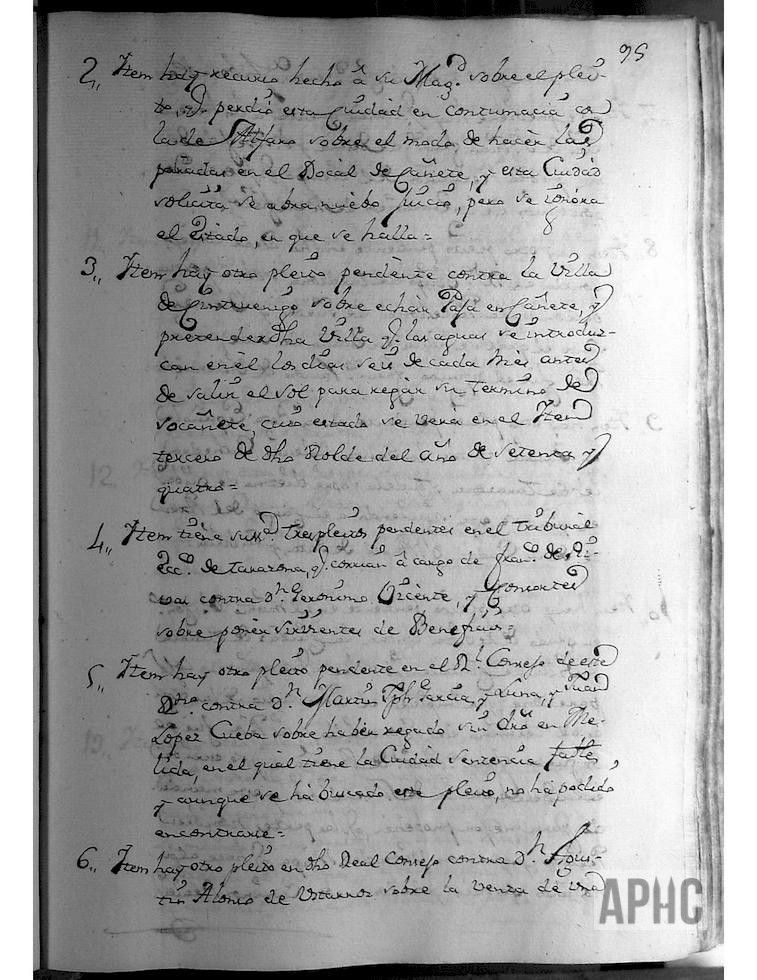 95
2,, Item hay recurso hecho â su Mag.d sobre el pley-
to, q.e perdió esta Ciudad en contumacia con
la de Alfaro sobre el modo de hacer las
paradas en el Bocal de Cañete, y esta Ciudad
solicita se abra nuebo Juicio, pero se ignora
el Estado, en que se halla=
3,, Item hay otro pleito pendente contra la Villa
de Cintruenigo sobre echar Papa en Cañete, y
pretender dha Villa q.e las aguas se introduz-
can en èl los dias seis de cada Mes antes
de salir el sol para regar su termino de
socañete, cuio estado se verà en el Item
tercero de dho Rolde del año de setenta y
quatro=
4,, Item tiene tres pleitos pendentes en el Tribunal
Ecc.o de Tarazona, q.e corrian â cargo de Fran.co de
contra D.n Geronimo Vicente, y Consortes
sobre poner sirvientes de Beneficios=
5,, Item hay otro pleito pendente en el R.l Consejo de este
Rno. contra D.n Martin Jph Garcia y Luna, y Juan
Lopez Cueba sobre haber regado sin dro en Me-
lida, en el qual tiene la Ciudad sentencia
y aunque se hà buscado este pleito, no hà podido
encontrarse=
6,, Item hay otro pleito en dho Real Consejo contra D.n Agus-
tin Alonso de sobre la venta de una
APHC